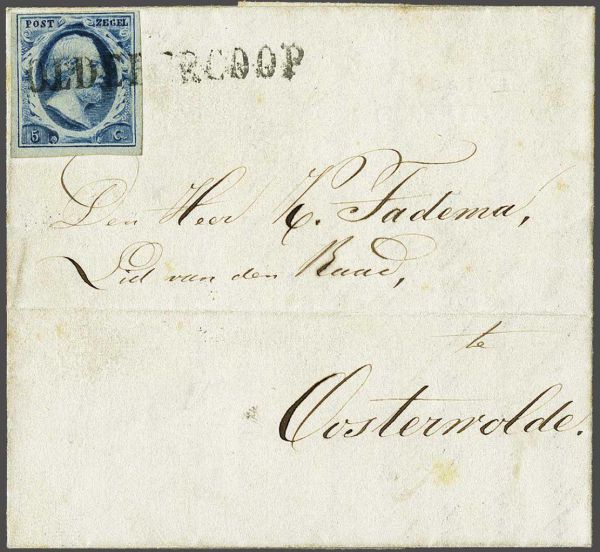 POST ZEGEL
OLDEBERCOOP
5 C
Den Heer K. Tadema,
Lid van den Raad,
te
Oosterwolde.